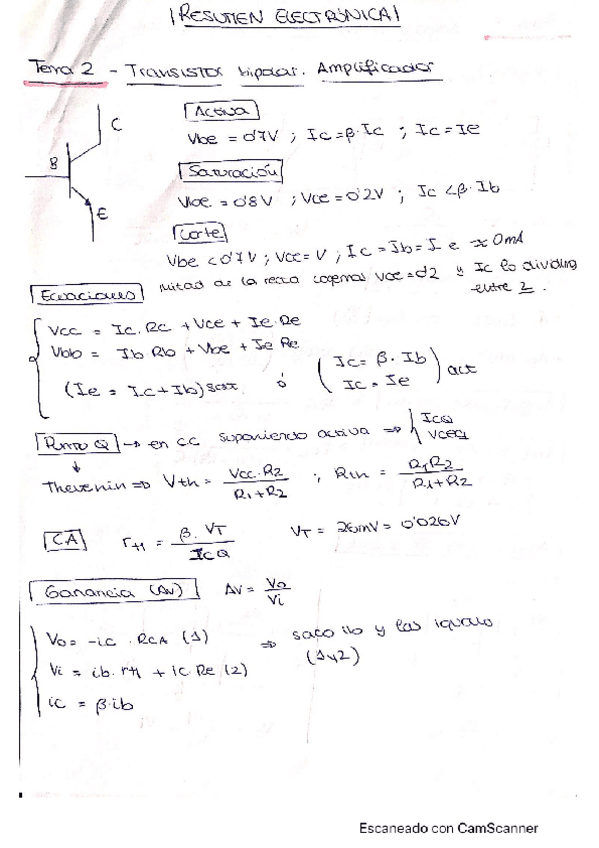 ¡RESUMEN ELECTRÓNICA!
Tema 2 - Transistor bipolar. Amplificador
C
B
E
Activa
Vbe = 0'7V ; Ic = β·Ic ; Ic = Ie
Saturación
Vbe = 0'8V ; Vce = 0'2V ; Ic < β·Ib
Corte
Vbe < 0'7V ; Vcc = V ; Ic = Ib = I e ≈ 0mA
mitad de la recta Vce = d2 y Ic lo divido
entre 2.
Ecuaciones
Vcc = Ic·Rc + Vce + Ie·Re
Vbb = Ib Rb + Vbe + Ie Re
(Ie = Ic + Ib) sat ó (Ic = β·Ib
Ic = Ie) act
Punto Q → en CC suponiendo activa ⇒ { ICQ
VCEQ
Thevenin ⇒ Vth = Vcc·R2 / R1+R2 ; Rth = R1R2 / R1+R2
CA rπ = β·VT / ICQ VT = 26mV = 0'026V
Ganancia (Av) Av = Vo / Vi
Vo = -ic · RCA (1)
Vi = ib·rπ + ic·Re (2)
ic = β·ib
⇒ saco ib y las igualo
(1 y 2)
Escaneado con CamScanner